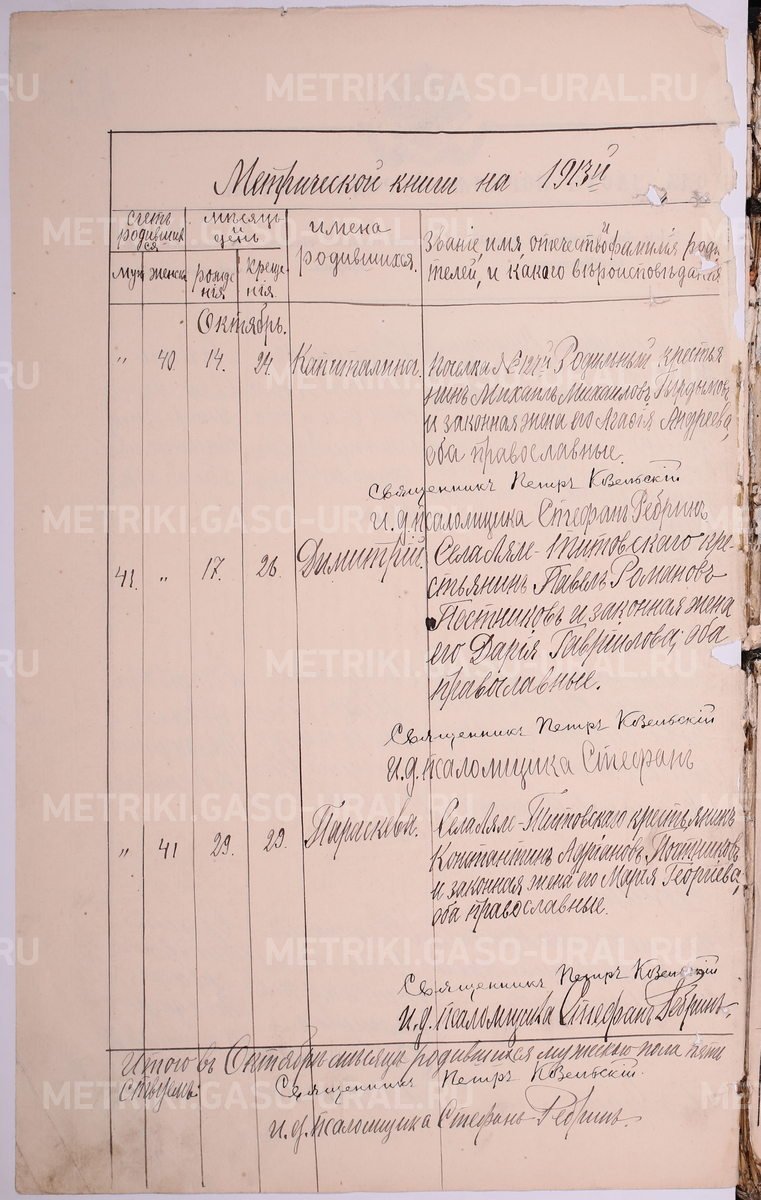 METRIKI.GASO-URAL.RU
Метрической книги на 1913й
Счетъ родившихся
Мѣсяцъ и день
имена родившихся.
Званіе, имя, отчество и фамилія роди
телей, и какого вѣроисповѣданія
муж женск рожде
нія креще
нія
Октябрь.
" 40 14. 24. Капиталина. Поселка № 124й Родильный крестья
нинъ Михаилъ Михаиловъ
и законная жена его Агафія Андреева,
оба православные.
Священникъ Петръ Козельскій
и.д. псаломщика Стефанъ Ребринъ
41. " 17. 26. Димитрій. Села Ляле-Титовскаго кре-
стьянинъ Павелъ Романовъ
Постниковъ и законная жена
его Дарія Гавриилова, оба
православные.
Священникъ Петръ Козельскій
и.д. псаломщика Стефанъ
" 41 29. 29. Параскева. Села Ляле-Титовскаго крестьянинъ
Константинъ Адріановъ Постниковъ
и законная жена его Марія Георгіева,
оба православные.
Священникъ Петръ Козельскій
и.д. псаломщика Стефанъ Ребринъ.
Итого въ Октябрѣ мѣсяцѣ родившихся мужескаго пола пять
Священникъ Петръ Козельскій.
и.д. псаломщика Стефанъ Ребринъ.